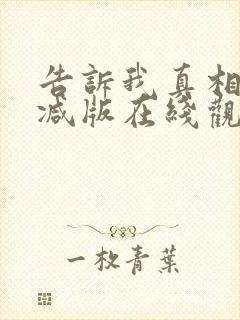 告訴我真相
減版在綫觀
一枚青葉